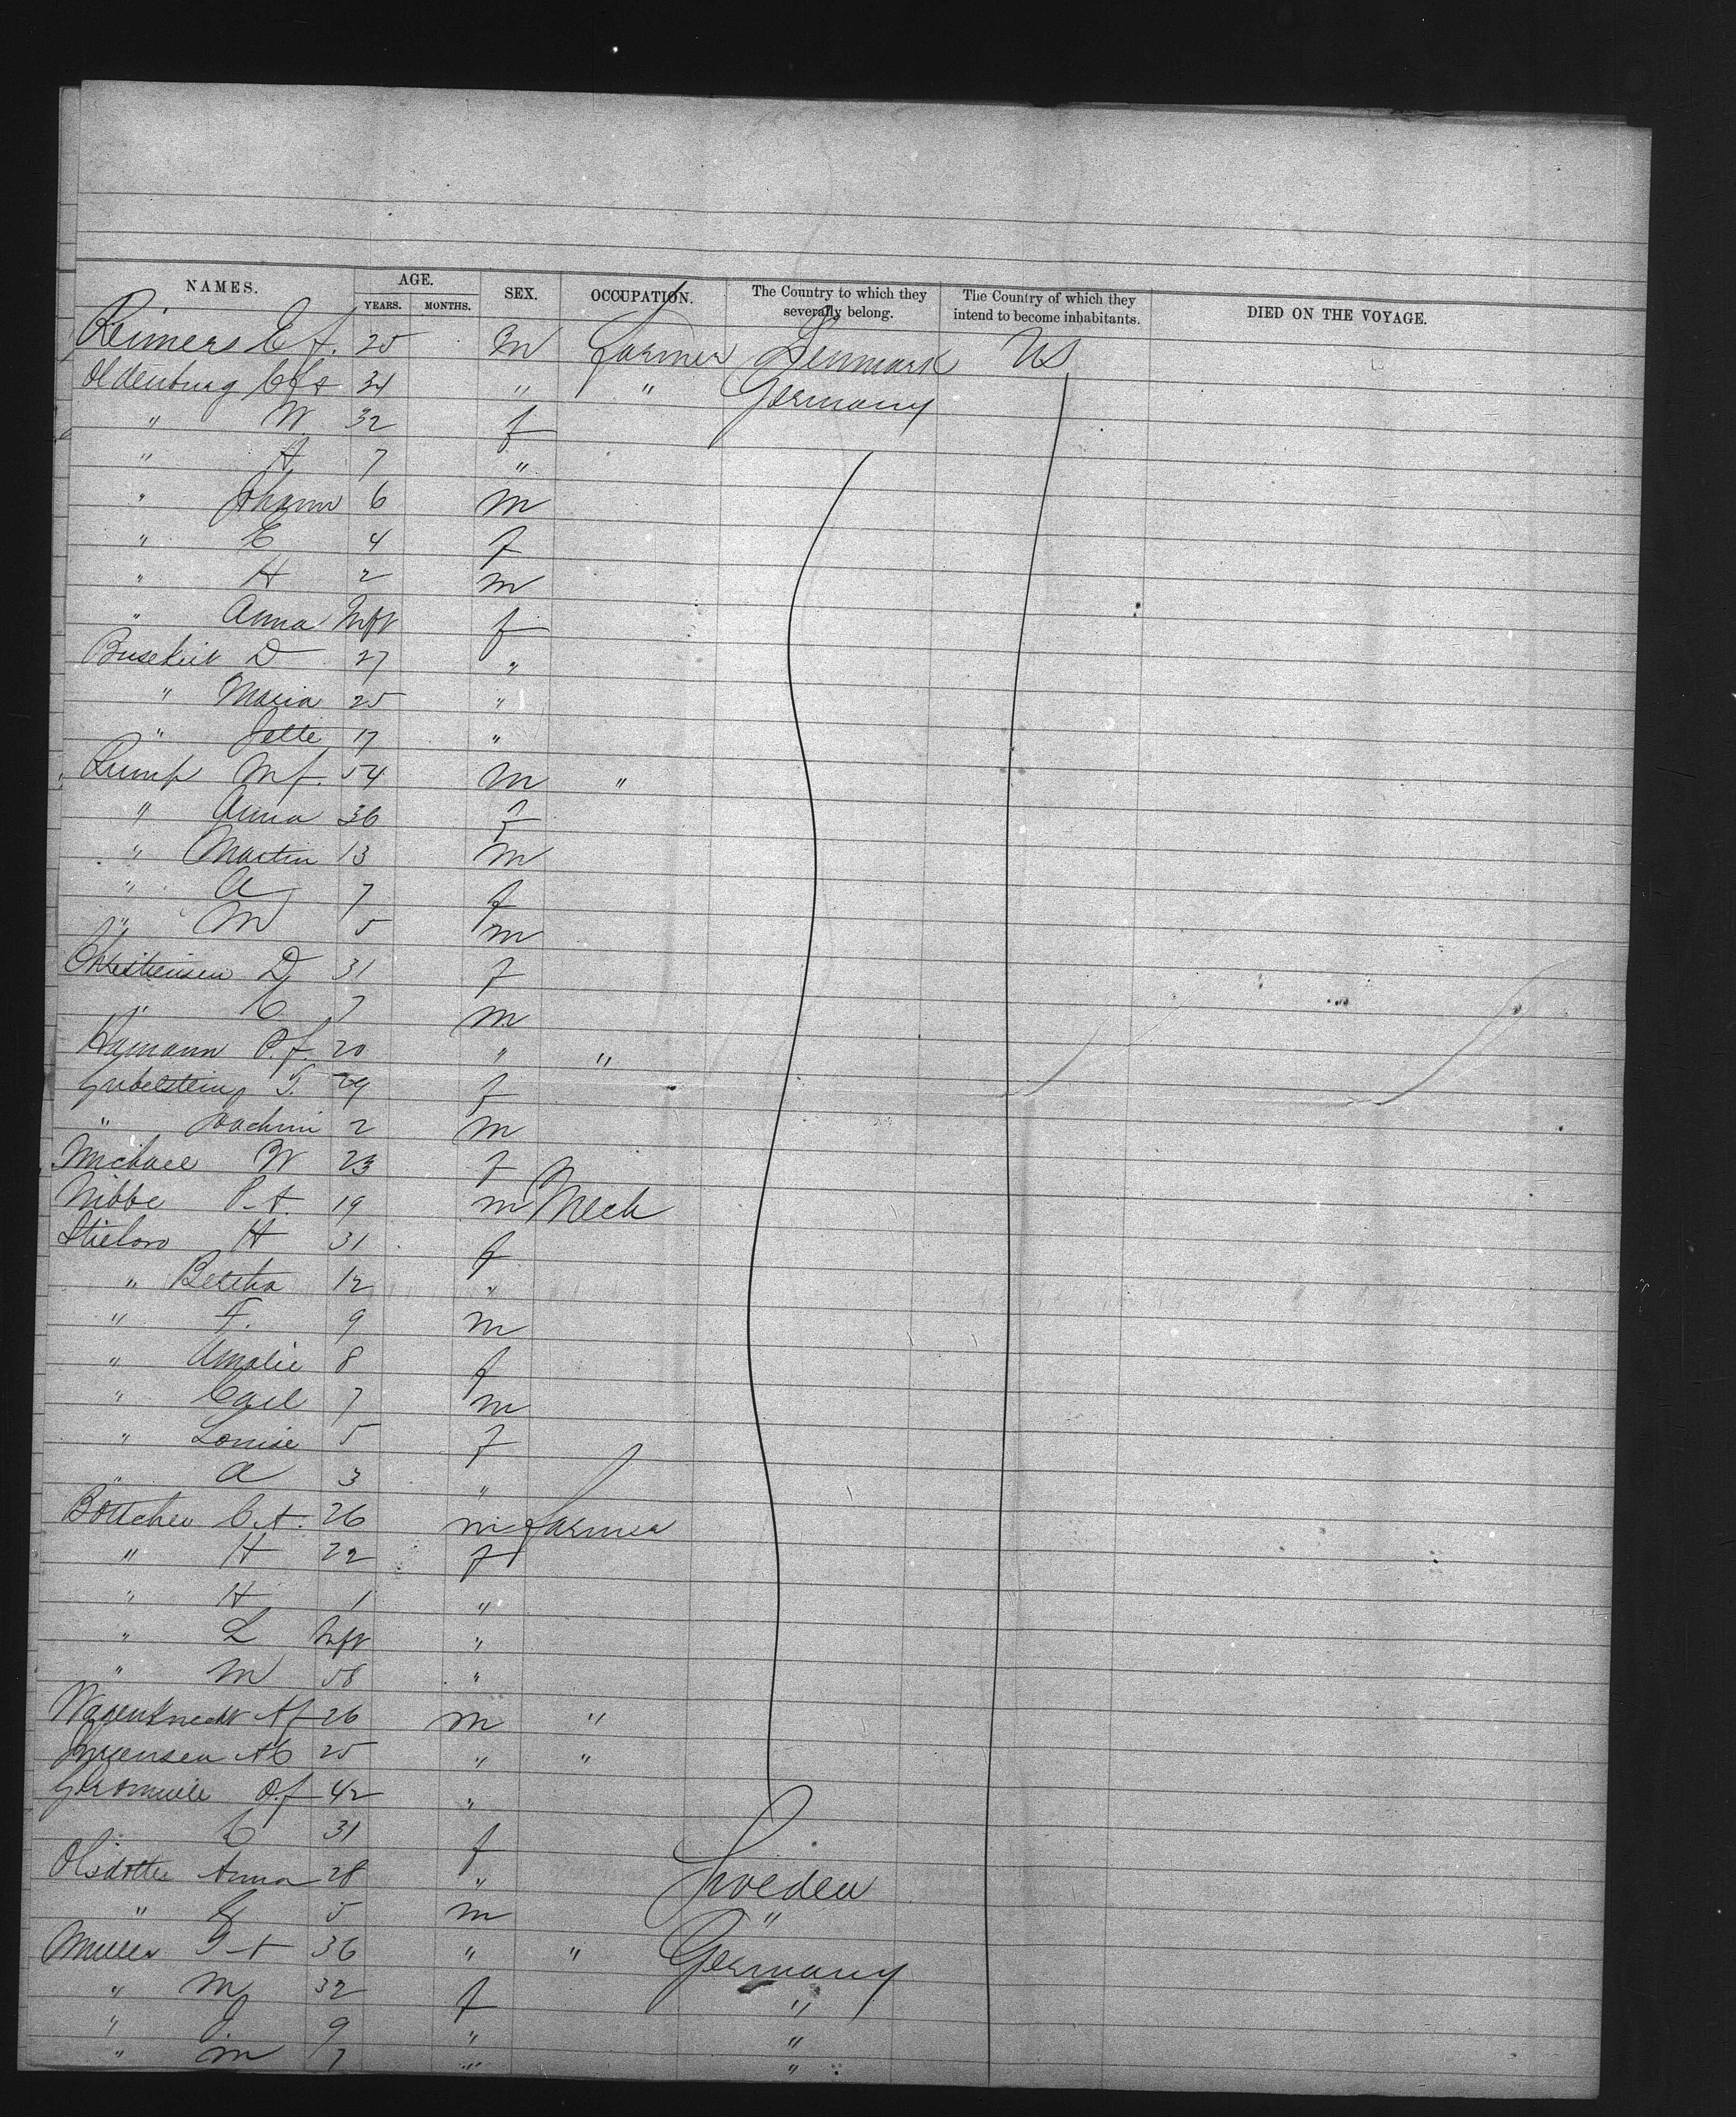 NAMES. AGE. YEARS. MONTHS. SEX. OCCUPATION. The Country to which they severally belong. The Country of which they intend to become inhabitants. DIED ON THE VOYAGE.
Reimers C f. 25 M Farmer Denmark US
Oldenburg 34 " " Germany
" W. 32 f
" A 7 "
" Johann 6 m
" C 4 f
" H 2 m
" Anna Inft f
D 27 "
" Maria 25 "
" Jette 17 "
Rump M f. 54 m "
" Anna 36 f
" Martin 13 m
" A 7 f
" M 5 m
Christiensen D 31 f
" C 7 m
Hamann P. f. 20 " "
Gubelstein T. 29 f
" Joachim 2 m
Michael W 23 f
Nibbe P. A. 19 m Mech
H 31 f
" Bertha 12 "
" F. 9 m
" Amalie 8 f
" Carl 7 m
" Louise 5 f
" A 3 "
Bottcher C. A. 26 m Farmer
" H 22 f
" H 1 "
" L Inft "
" M 58 "
Wagenknecht A f 26 m "
Jurgensen A C 25 " "
O. f 42 "
C 31 f
Olsdotter Anna 28 " Sweden
" 5 m "
Muller 36 " " Germany
" M 32 f "
" J. 9 " "
" M 7 " "